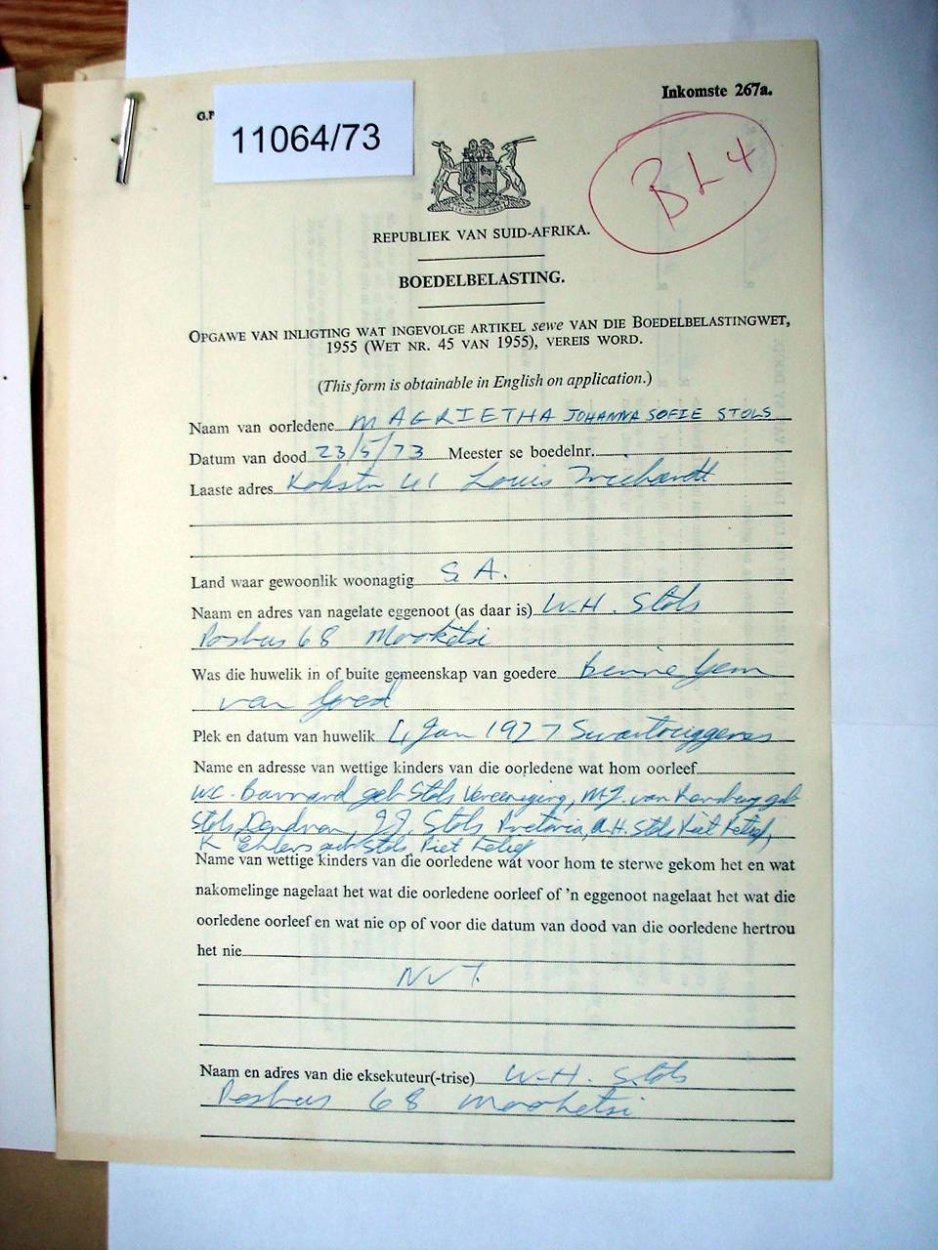 Inkomste 267a.
11064/73
BL4
REPUBLIEK VAN SUID-AFRIKA.
BOEDELBELASTING.
OPGAWE VAN INLIGTING WAT INGEVOLGE ARTIKEL sewe VAN DIE BOEDELBELASTINGWET,
1955 (WET NR. 45 VAN 1955), VEREIS WORD.
(This form is obtainable in English on application.)
Naam van oorledene MAGRIETHA JOHANNA SOFIE STOLS
Datum van dood 23/5/73 Meester se boedelnr.
Laaste adres Kokstr 41 Louis Trichardt
Land waar gewoonlik woonagtig S.A.
Naam en adres van nagelate eggenoot (as daar is) W.H. Stols
Posbus 68 Mooketsi
Was die huwelik in of buite gemeenskap van goedere binne Gem
van Goed
Plek en datum van huwelik Jan 1927 Swartruggens
Name en adresse van wettige kinders van die oorledene wat hom oorleef
W.C. Barnard geb Stols Vereeniging, M.J. van Rensburg geb
Stols, Dendron, J.J. Stols Pretoria, A.H. Stols Piet Retief,
K Ehlers geb Stols Piet Retief
Name van wettige kinders van die oorledene wat voor hom te sterwe gekom het en wat
nakomelinge nagelaat het wat die oorledene oorleef of 'n eggenoot nagelaat het wat die
oorledene oorleef en wat nie op of voor die datum van dood van die oorledene hertrou
het nie
NVT.
Naam en adres van die eksekuteur(-trise) W.H. Stols
Posbus 68 Mooketsi